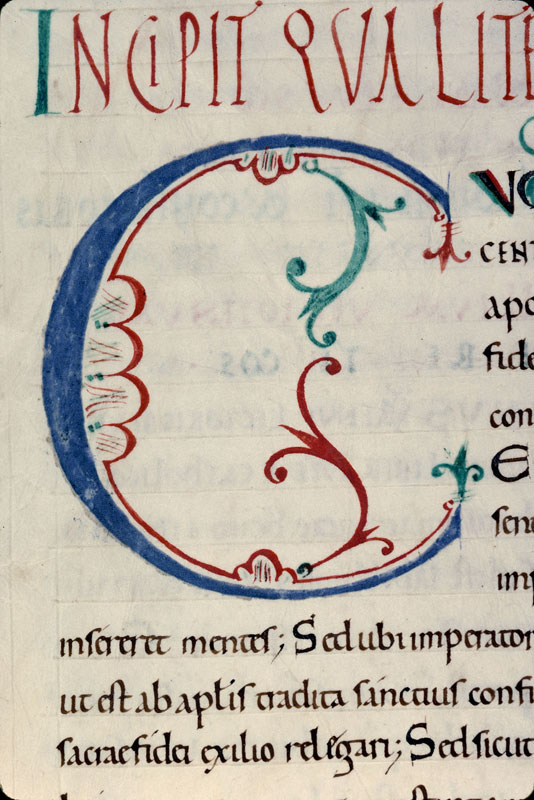 INCIPIT QUALITE
C
VO
CENT
apo
fide
con
E
senc
imp
insereret mentes; Sed ubi imperator
ut est ab apłis tradita sanctius confi
sacrae fidei exilio relegari; Sed sicut